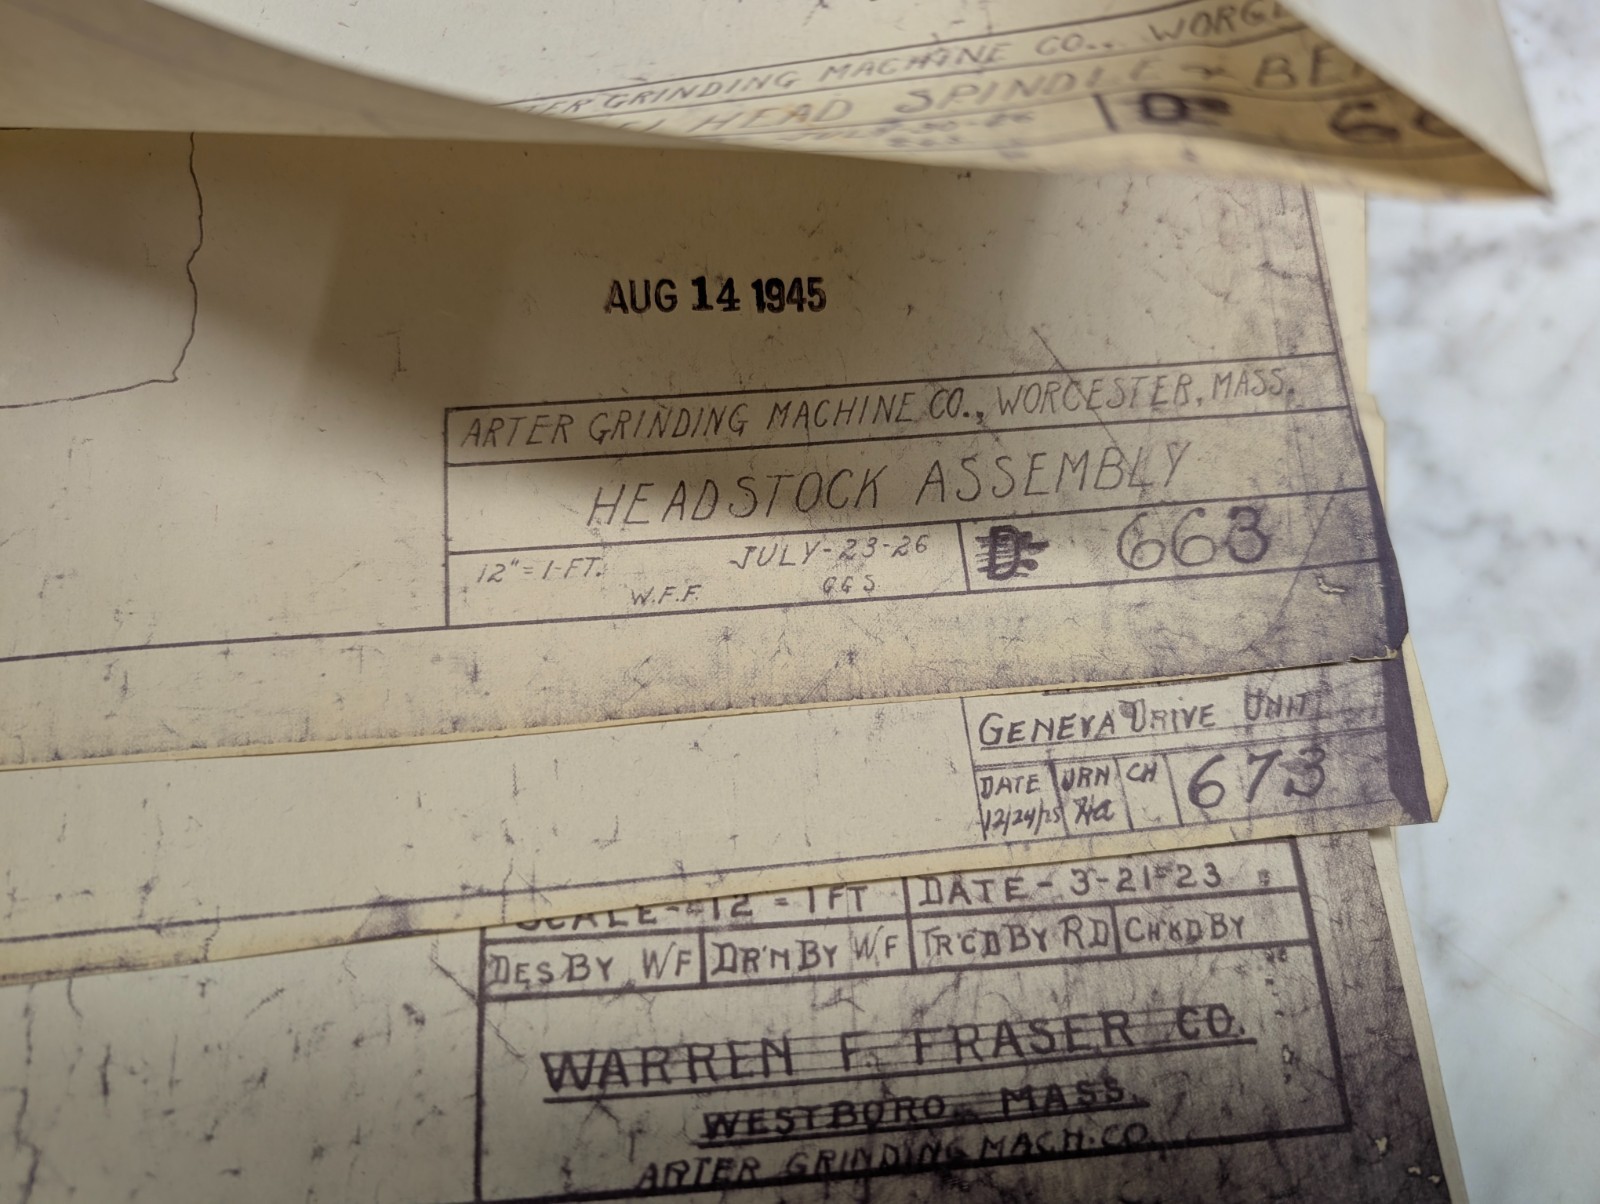 GRINDING MACHINE CO.,
HEAD SPINDLE &
D
AUG 14 1945
ARTER GRINDING MACHINE CO., WORCESTER, MASS.
HEADSTOCK ASSEMBLY
12" = 1-FT. JULY-23-26 D 663
W.F.F. GGS
GENEVA DRIVE UNIT
DATE DRN CH 673
12/24/25
SCALE-12 = 1FT DATE-3-21-23
DES BY WF DR'N BY WF TR'C'D BY RD CH'K'D BY
WARREN F. FRASER CO.
WESTBORO, MASS.
ARTER GRINDING MACH. CO.